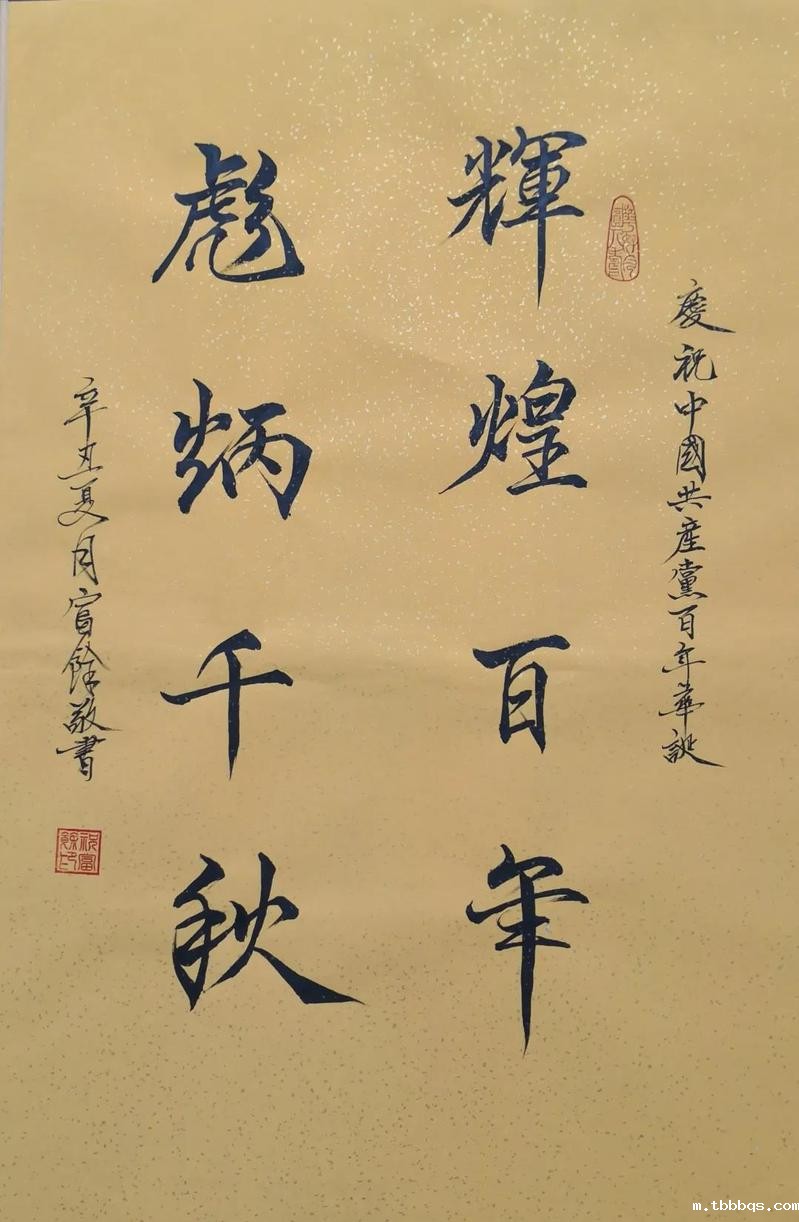 慶祝中國共產黨百年華誕
輝煌百年
彪炳千秋
辛丑夏月富餘敬書
祝富餘印
m.tbbbqs.com